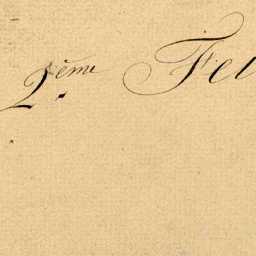 2.ème Fe